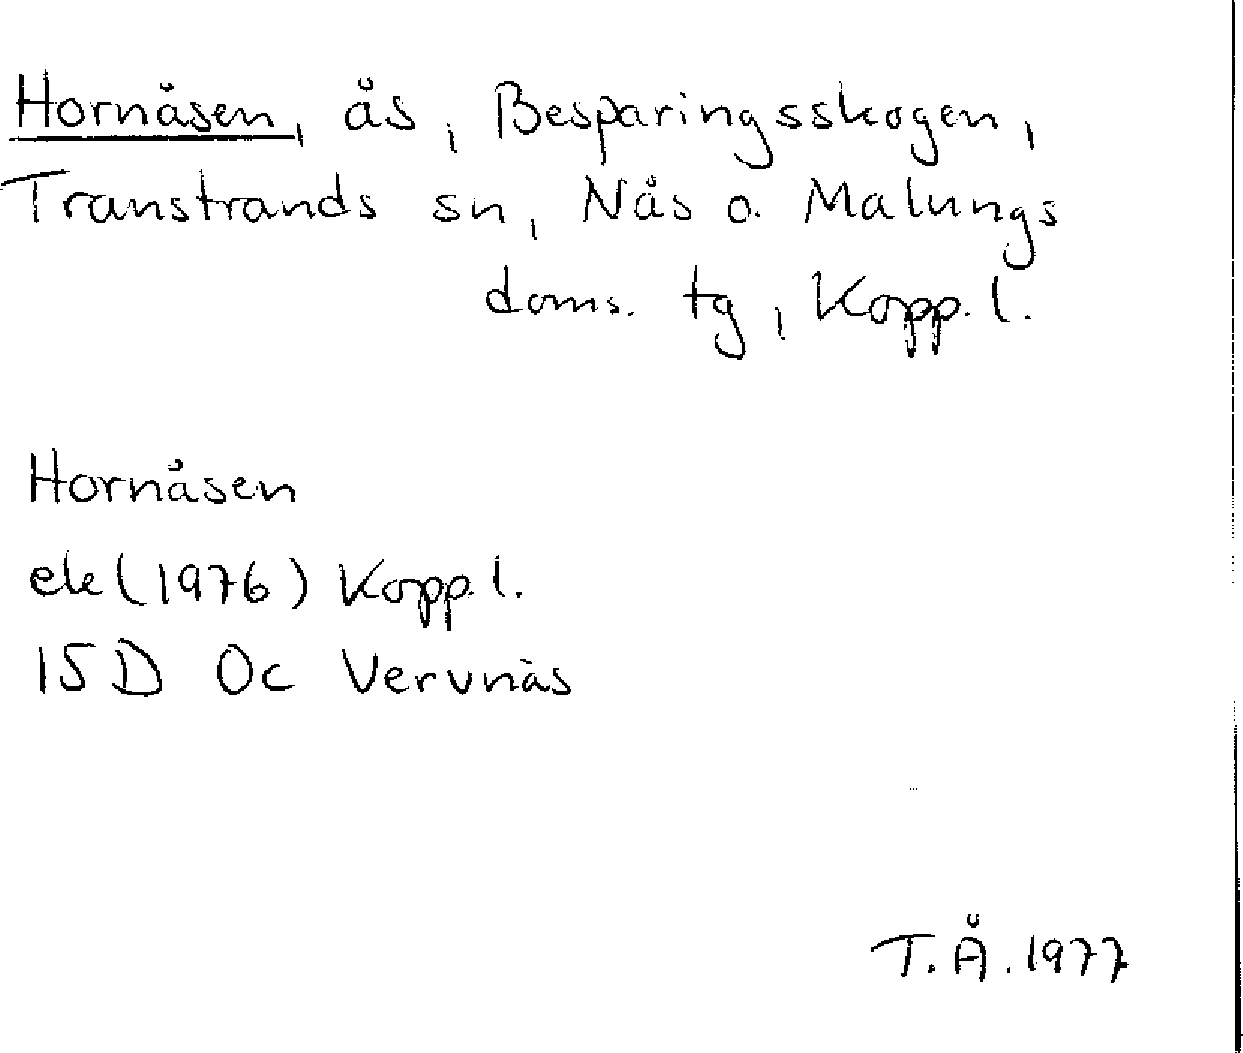 Hornåsen, ås, Besparingsskogen,
Transtrands sn, Nås o. Malungs
doms. tg, Kopp. l.
Hornåsen
ek (1976) Kopp. l.
15 D 0c Vervnäs
T. Å. 1977